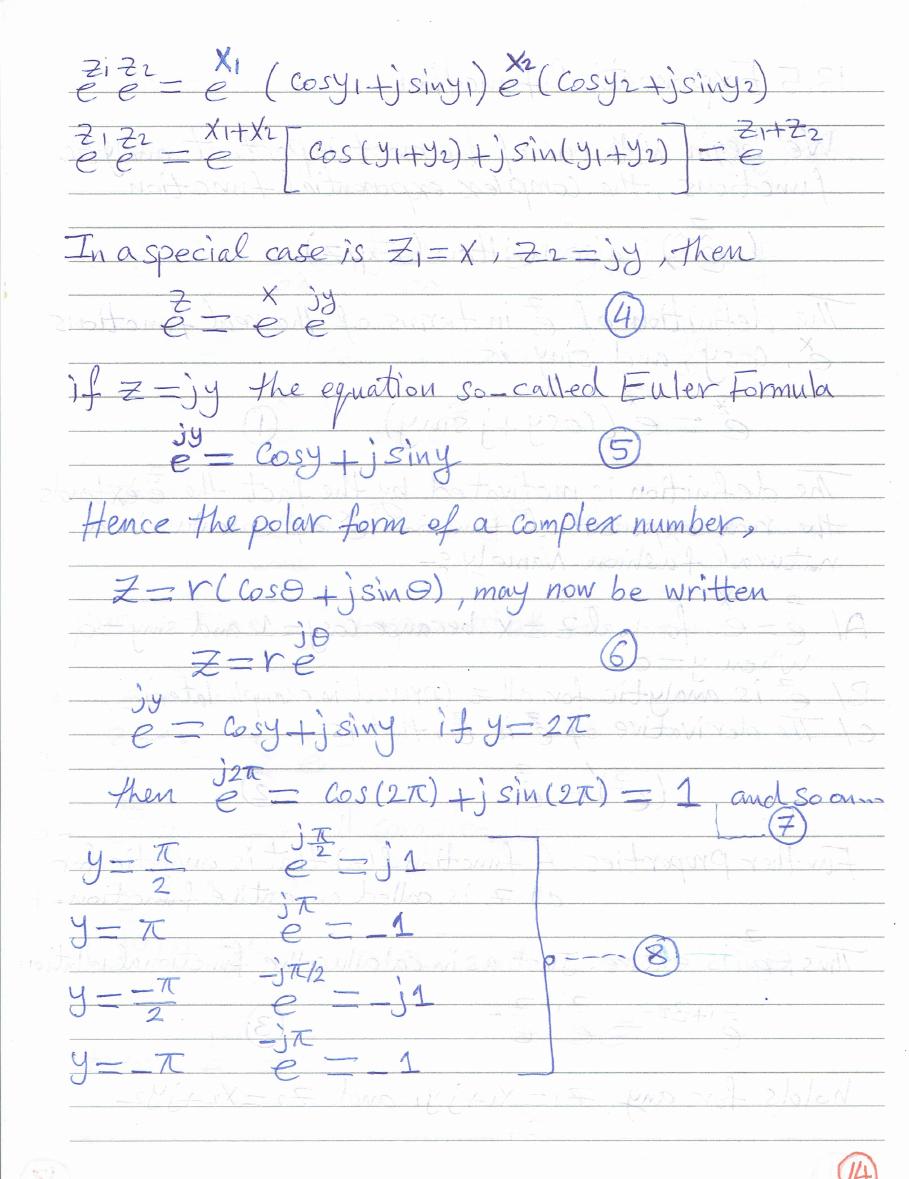 e^{z1} e^{z2} = e^{x1} (cosy1+jsiny1) e^{x2} (cosy2+jsiny2)
e^{z1} e^{z2} = e^{x1+x2} [cos(y1+y2)+j sin(y1+y2)] = e^{z1+z2}
In a special case is z1=x, z2=jy, then
e^{z} = e^{x} e^{jy} ④
if z=jy the equation so-called Euler Formula
e^{jy} = cosy+jsiny ⑤
Hence the polar form of a complex number,
z=r(cosθ+jsinθ), may now be written
z=r e^{jθ} ⑥
e^{jy} = cosy+jsiny if y=2π
then e^{j2π} = cos(2π)+j sin(2π) = 1 and so on... ⑦
y=π/2 e^{jπ/2} = j1
y=π e^{jπ} = -1
⑧
y=-π/2 e^{-jπ/2} = -j1
y=-π e^{-jπ} = -1
⑭